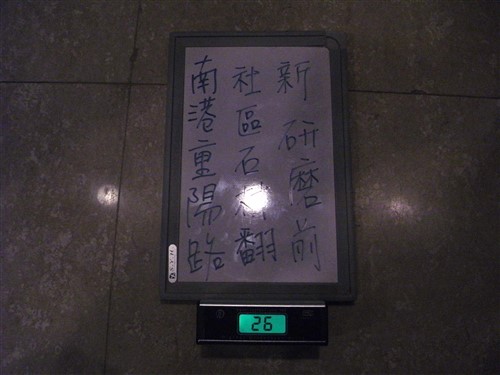 南港重陽路
社區石材翻
新 研磨前
26